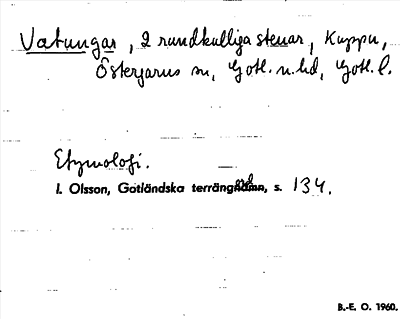 Vatungar, 2 rundkulliga stenar, Kuppu,
Östergarns sn, Gotl. n. hd, Gotl. l.
Etymologi.
I. Olsson, Gotländska terrängord, s. 134.
B.-E. O. 1960.